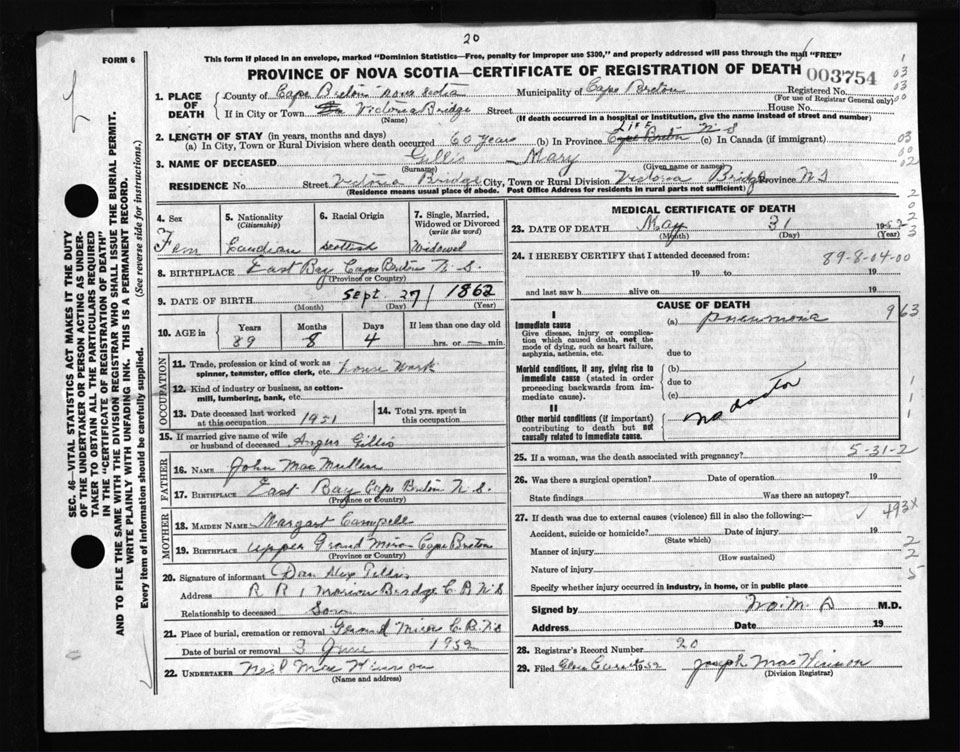 20
FORM 6
This form if placed in an envelope, marked "Dominion Statistics—Free, penalty for improper use $300," and properly addressed will pass through the mail "FREE"
PROVINCE OF NOVA SCOTIA—CERTIFICATE OF REGISTRATION OF DEATH
003754
1. PLACE OF DEATH
County of Cape Breton Nova Scotia Municipality of Cape Breton Registered No.
(For use of Registrar General only)
If in City or Town Victoria Bridge Street House No.
(Name) (If death occurred in a hospital or institution, give the name instead of street and number)
2. LENGTH OF STAY (in years, months and days)
(a) In City, Town or Rural Division where death occurred 60 years (b) In Province Life Cape Breton N S (c) In Canada (if immigrant)
3. NAME OF DECEASED Gillis Mary
(Surname) (Given name or names)
RESIDENCE No. Street Victoria Bridge City, Town or Rural Division Victoria Bridge Province N S
(Residence means usual place of abode. Post Office Address for residents in rural parts not sufficient)
4. Sex
Fem
5. Nationality
(Citizenship)
Candian
6. Racial Origin
Scottish
7. Single, Married, Widowed or Divorced
(write the word)
Widowed
8. BIRTHPLACE East Bay Cape Breton N. S.
(Province or Country)
9. DATE OF BIRTH Sept 27 1862
(Month) (Day) (Year)
10. AGE in
Years Months Days If less than one day old
89 8 4 hrs. or min.
OCCUPATION
11. Trade, profession or kind of work as spinner, teamster, office clerk, etc. House Work
12. Kind of industry or business, as cotton-mill, lumbering, bank, etc.
13. Date deceased last worked at this occupation 1951
14. Total yrs. spent in this occupation
15. If married give name of wife or husband of deceased Angus Gillis
FATHER
16. NAME John MacMullin
17. BIRTHPLACE East Bay Cape Breton N. S.
(Province or Country)
MOTHER
18. MAIDEN NAME Margaret Campell
19. BIRTHPLACE Upper Grand Mira Cape Breton
(Province or Country)
20. Signature of informant Dan Alex Gillis
Address R R 1 Marion Bridge C. B N S
Relationship to deceased Son
21. Place of burial, cremation or removal Grand Mira C. B. N S
Date of burial or removal 3 June 1952
22. UNDERTAKER Neil MacKinnon
(Name and address)
MEDICAL CERTIFICATE OF DEATH
23. DATE OF DEATH May 31 1952
(Month) (Day) (Year)
24. I HEREBY CERTIFY that I attended deceased from: 89-8-04-00
19 to 19
and last saw h alive on 19
CAUSE OF DEATH
I
Immediate cause
Give disease, injury or complication which caused death, not the mode of dying, such as heart failure, asphyxia, asthenia, etc.
(a) Pneumonia 963
due to
Morbid conditions, if any, giving rise to immediate cause (stated in order proceeding backwards from immediate cause).
(b)
due to
(c)
no doctor
II
Other morbid conditions (if important) contributing to death but not causally related to immediate cause.
25. If a woman, was the death associated with pregnancy? 5-31-2
26. Was there a surgical operation? Date of operation 19
State findings Was there an autopsy?
27. If death was due to external causes (violence) fill in also the following:— 493X
Accident, suicide or homicide? Date of injury 19
(State which)
Manner of injury
(How sustained)
Nature of injury
Specify whether injury occurred in industry, in home, or in public place
Signed by No. M. D M.D.
Address Date 19
28. Registrar's Record Number 20
29. Filed 1952 Joseph MacKinnon
(Division Registrar)
SEC. 46—VITAL STATISTICS ACT MAKES IT THE DUTY
OF THE UNDERTAKER OR PERSON ACTING AS UNDERTAKER TO OBTAIN ALL THE PARTICULARS REQUIRED
IN THE "CERTIFICATE OF REGISTRATION OF DEATH"
AND TO FILE THE SAME WITH THE DIVISION REGISTRAR WHO SHALL ISSUE THE BURIAL PERMIT.
WRITE PLAINLY WITH UNFADING INK. THIS IS A PERMANENT RECORD.
Every item of information should be carefully supplied. (See reverse side for instructions.)